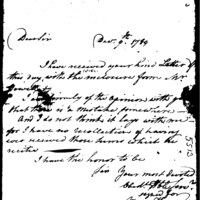 Dear Sir Decr. 9th. 1789
I have received your kind Letter of
this day, with the inclosure from Mr
I am firmly of the Opinion with you
that there is a mistake somewhere
And I do not think it lays with me
for I have no recollection of having
ever received those sums which he
recites
I have the honor to be
Sir Your most devoted